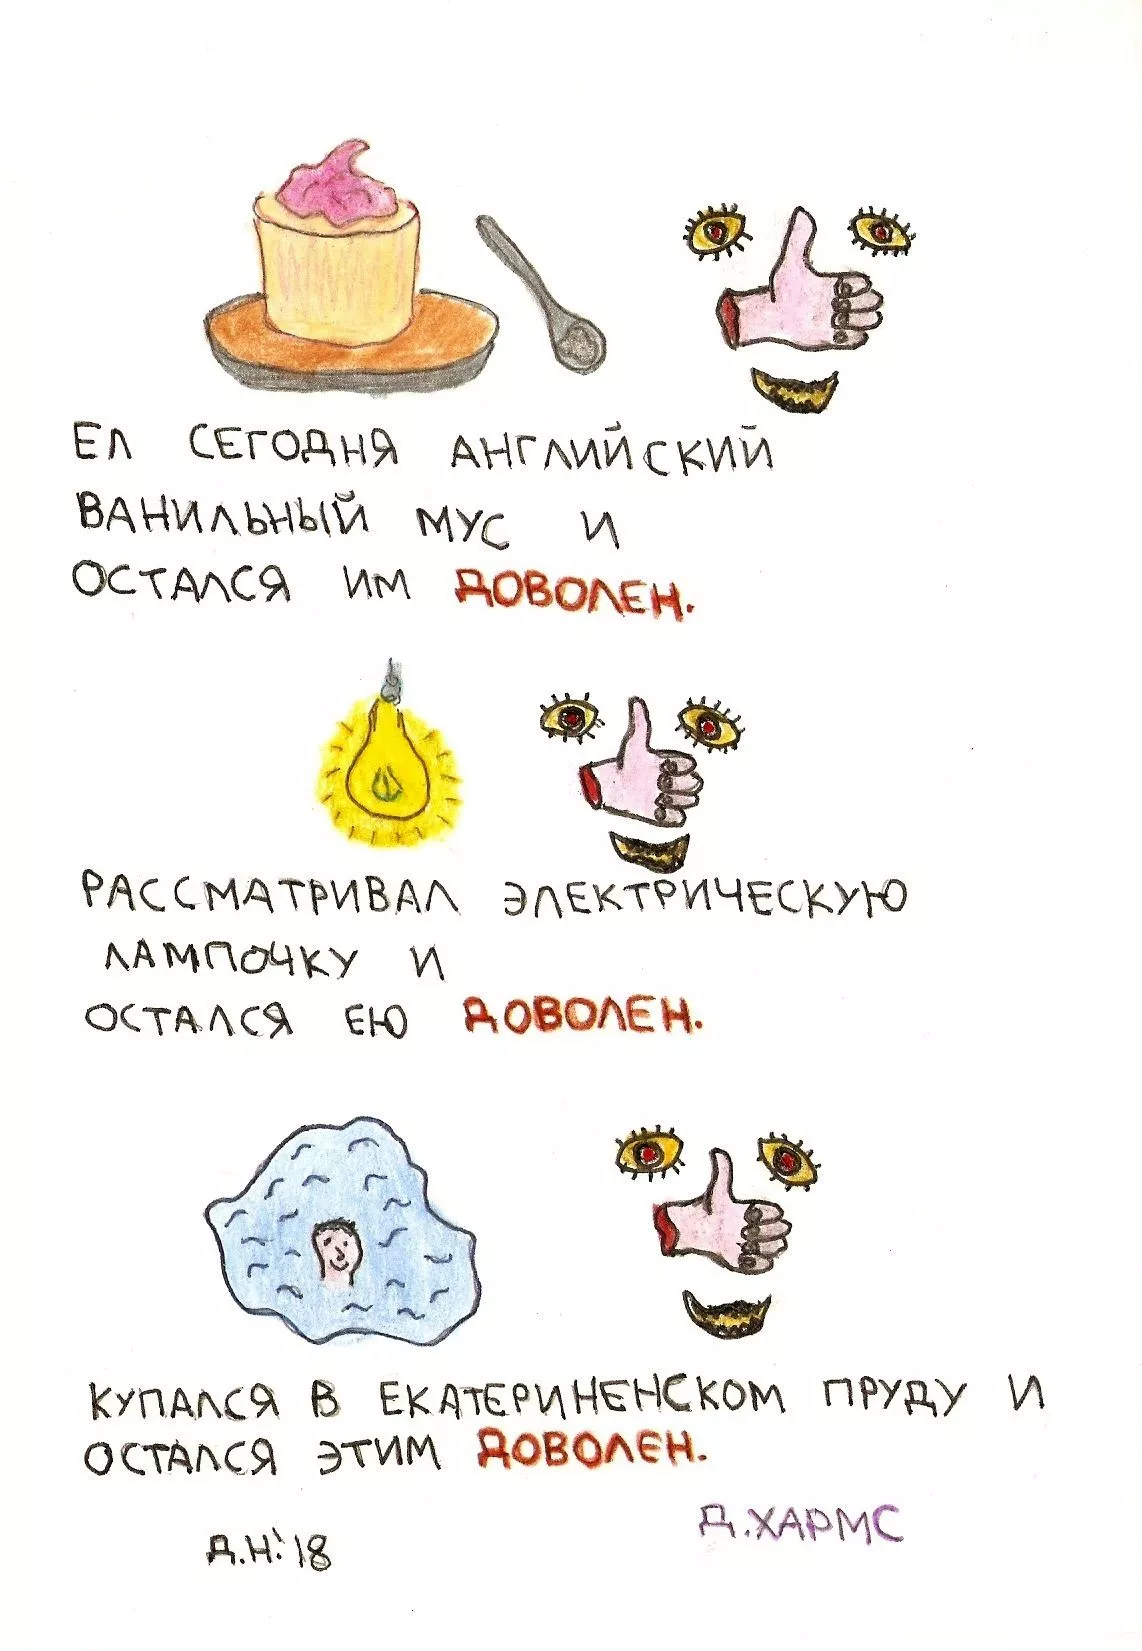 ЕЛ СЕГОДНЯ АНГЛИЙСКИЙ
ВАНИЛЬНЫЙ МУС И
ОСТАЛСЯ ИМ ДОВОЛЕН.
РАССМАТРИВАЛ ЭЛЕКТРИЧЕСКУЮ
ЛАМПОЧКУ И
ОСТАЛСЯ ЕЮ ДОВОЛЕН.
КУПАЛСЯ В ЕКАТЕРИНЕНСКОМ ПРУДУ И
ОСТАЛСЯ ЭТИМ ДОВОЛЕН.
Д.ХАРМС
Д.Н.'18